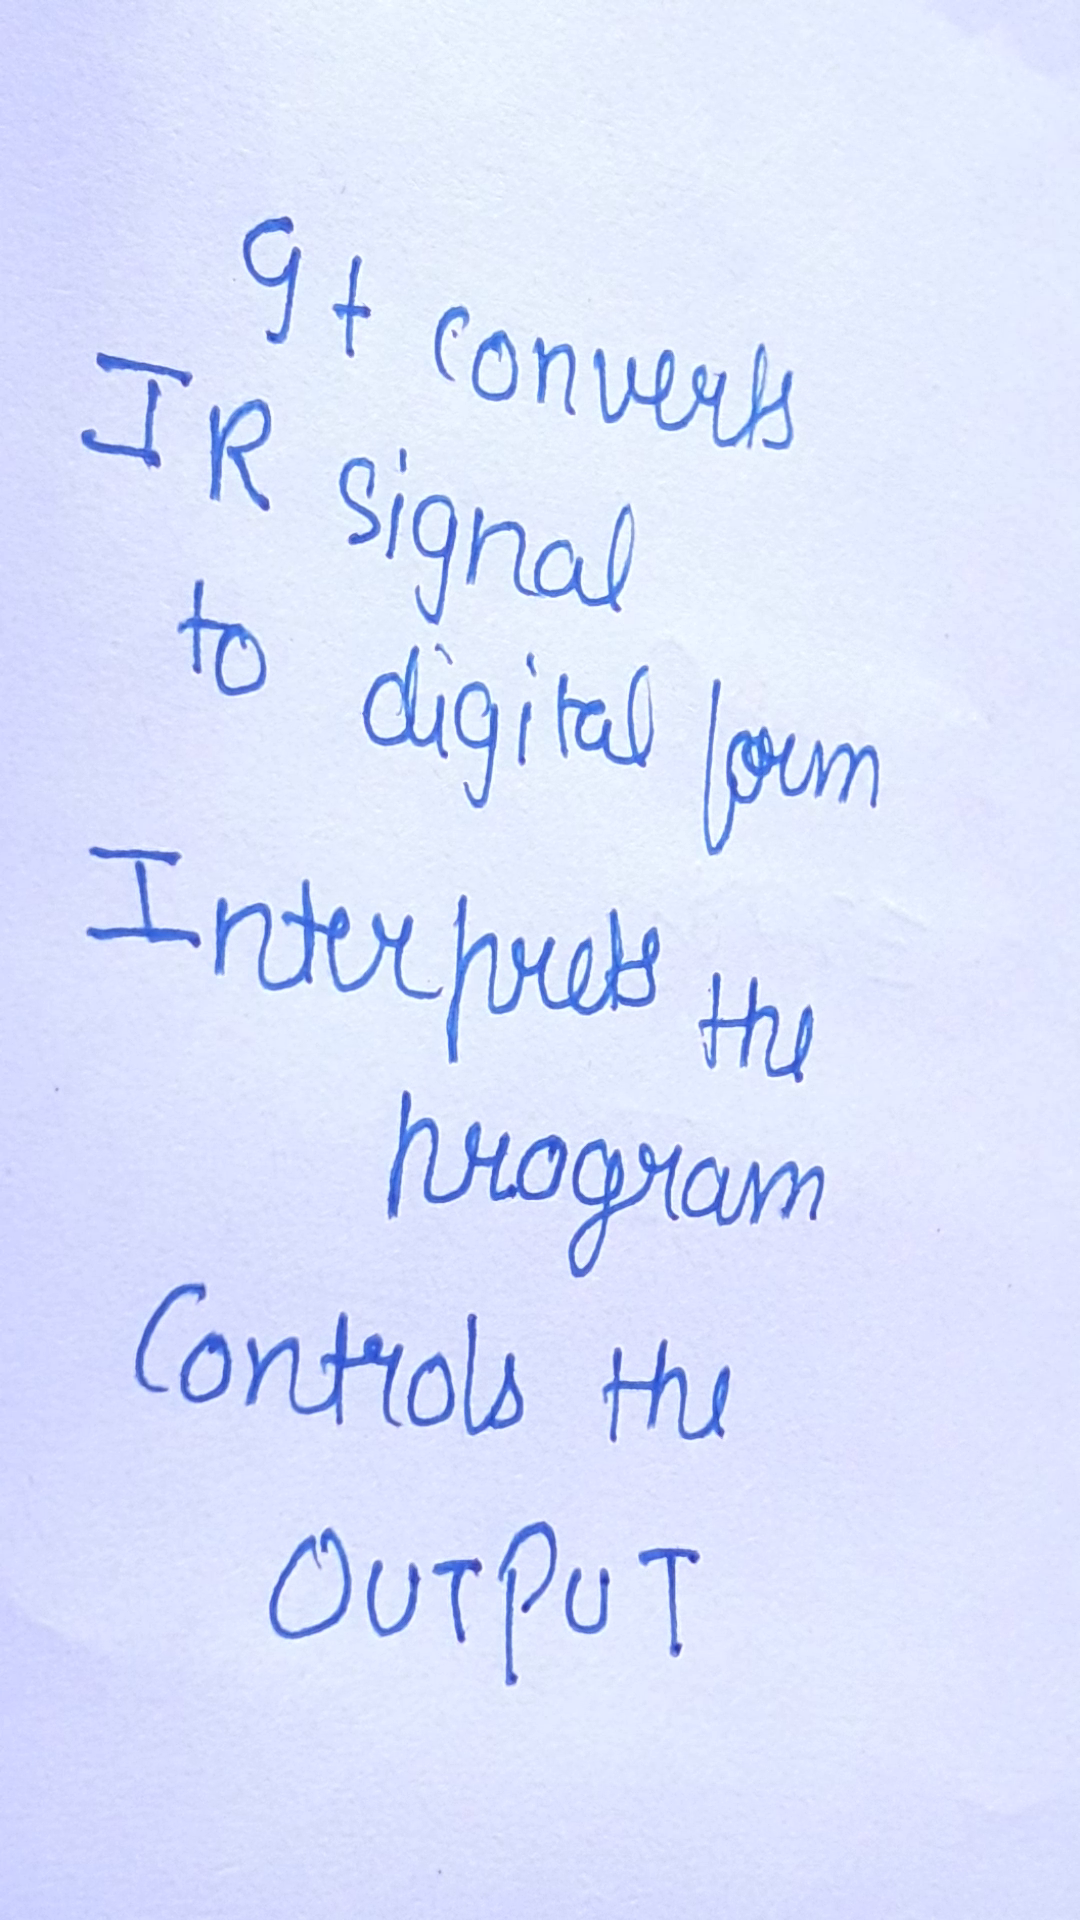 It converts
IR signal
to digital form
Interprets the
program
Controls the
OUTPUT